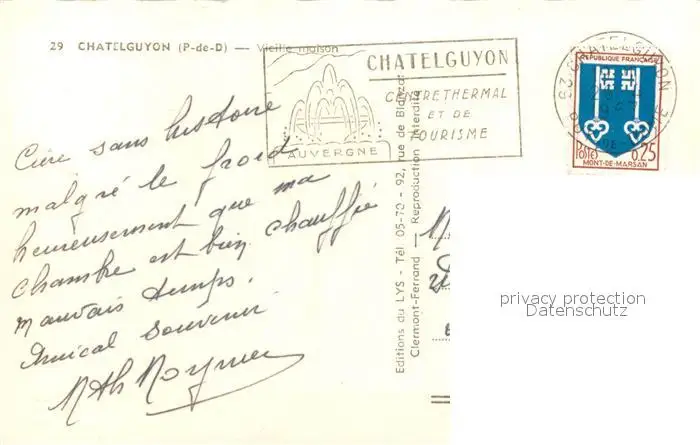 29 CHATELGUYON (P-de-D) — Vieille maison
CHATELGUYON
CENTRE THERMAL
ET DE
TOURISME
AUVERGNE
RÉPUBLIQUE FRANÇAISE
POSTES 0,25
MONT-DE-MARSAN
Cure sans histoire
malgré le froid
heureusement que ma
chambre est bien chauffée
mauvais temps.
Amical souvenir
Editions du LYS - Tél. 05-70 - 92, rue de Blanzat
Clermont-Ferrand — Reproduction interdite
privacy protection
Datenschutz